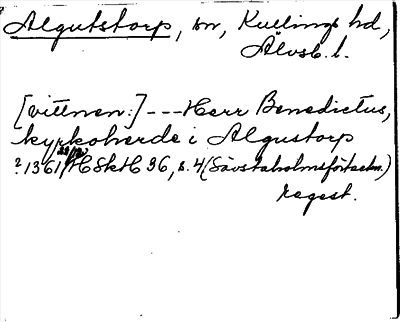 Algutstorp, sn, Kullings hd,
Älvsb. l.
[vittnen:] --- Herr Benedictus,
kyrkoherde i Algustorp
? 1361 HSkH 36, s. 4 (Sävstaholmsförteckn.)
regest.